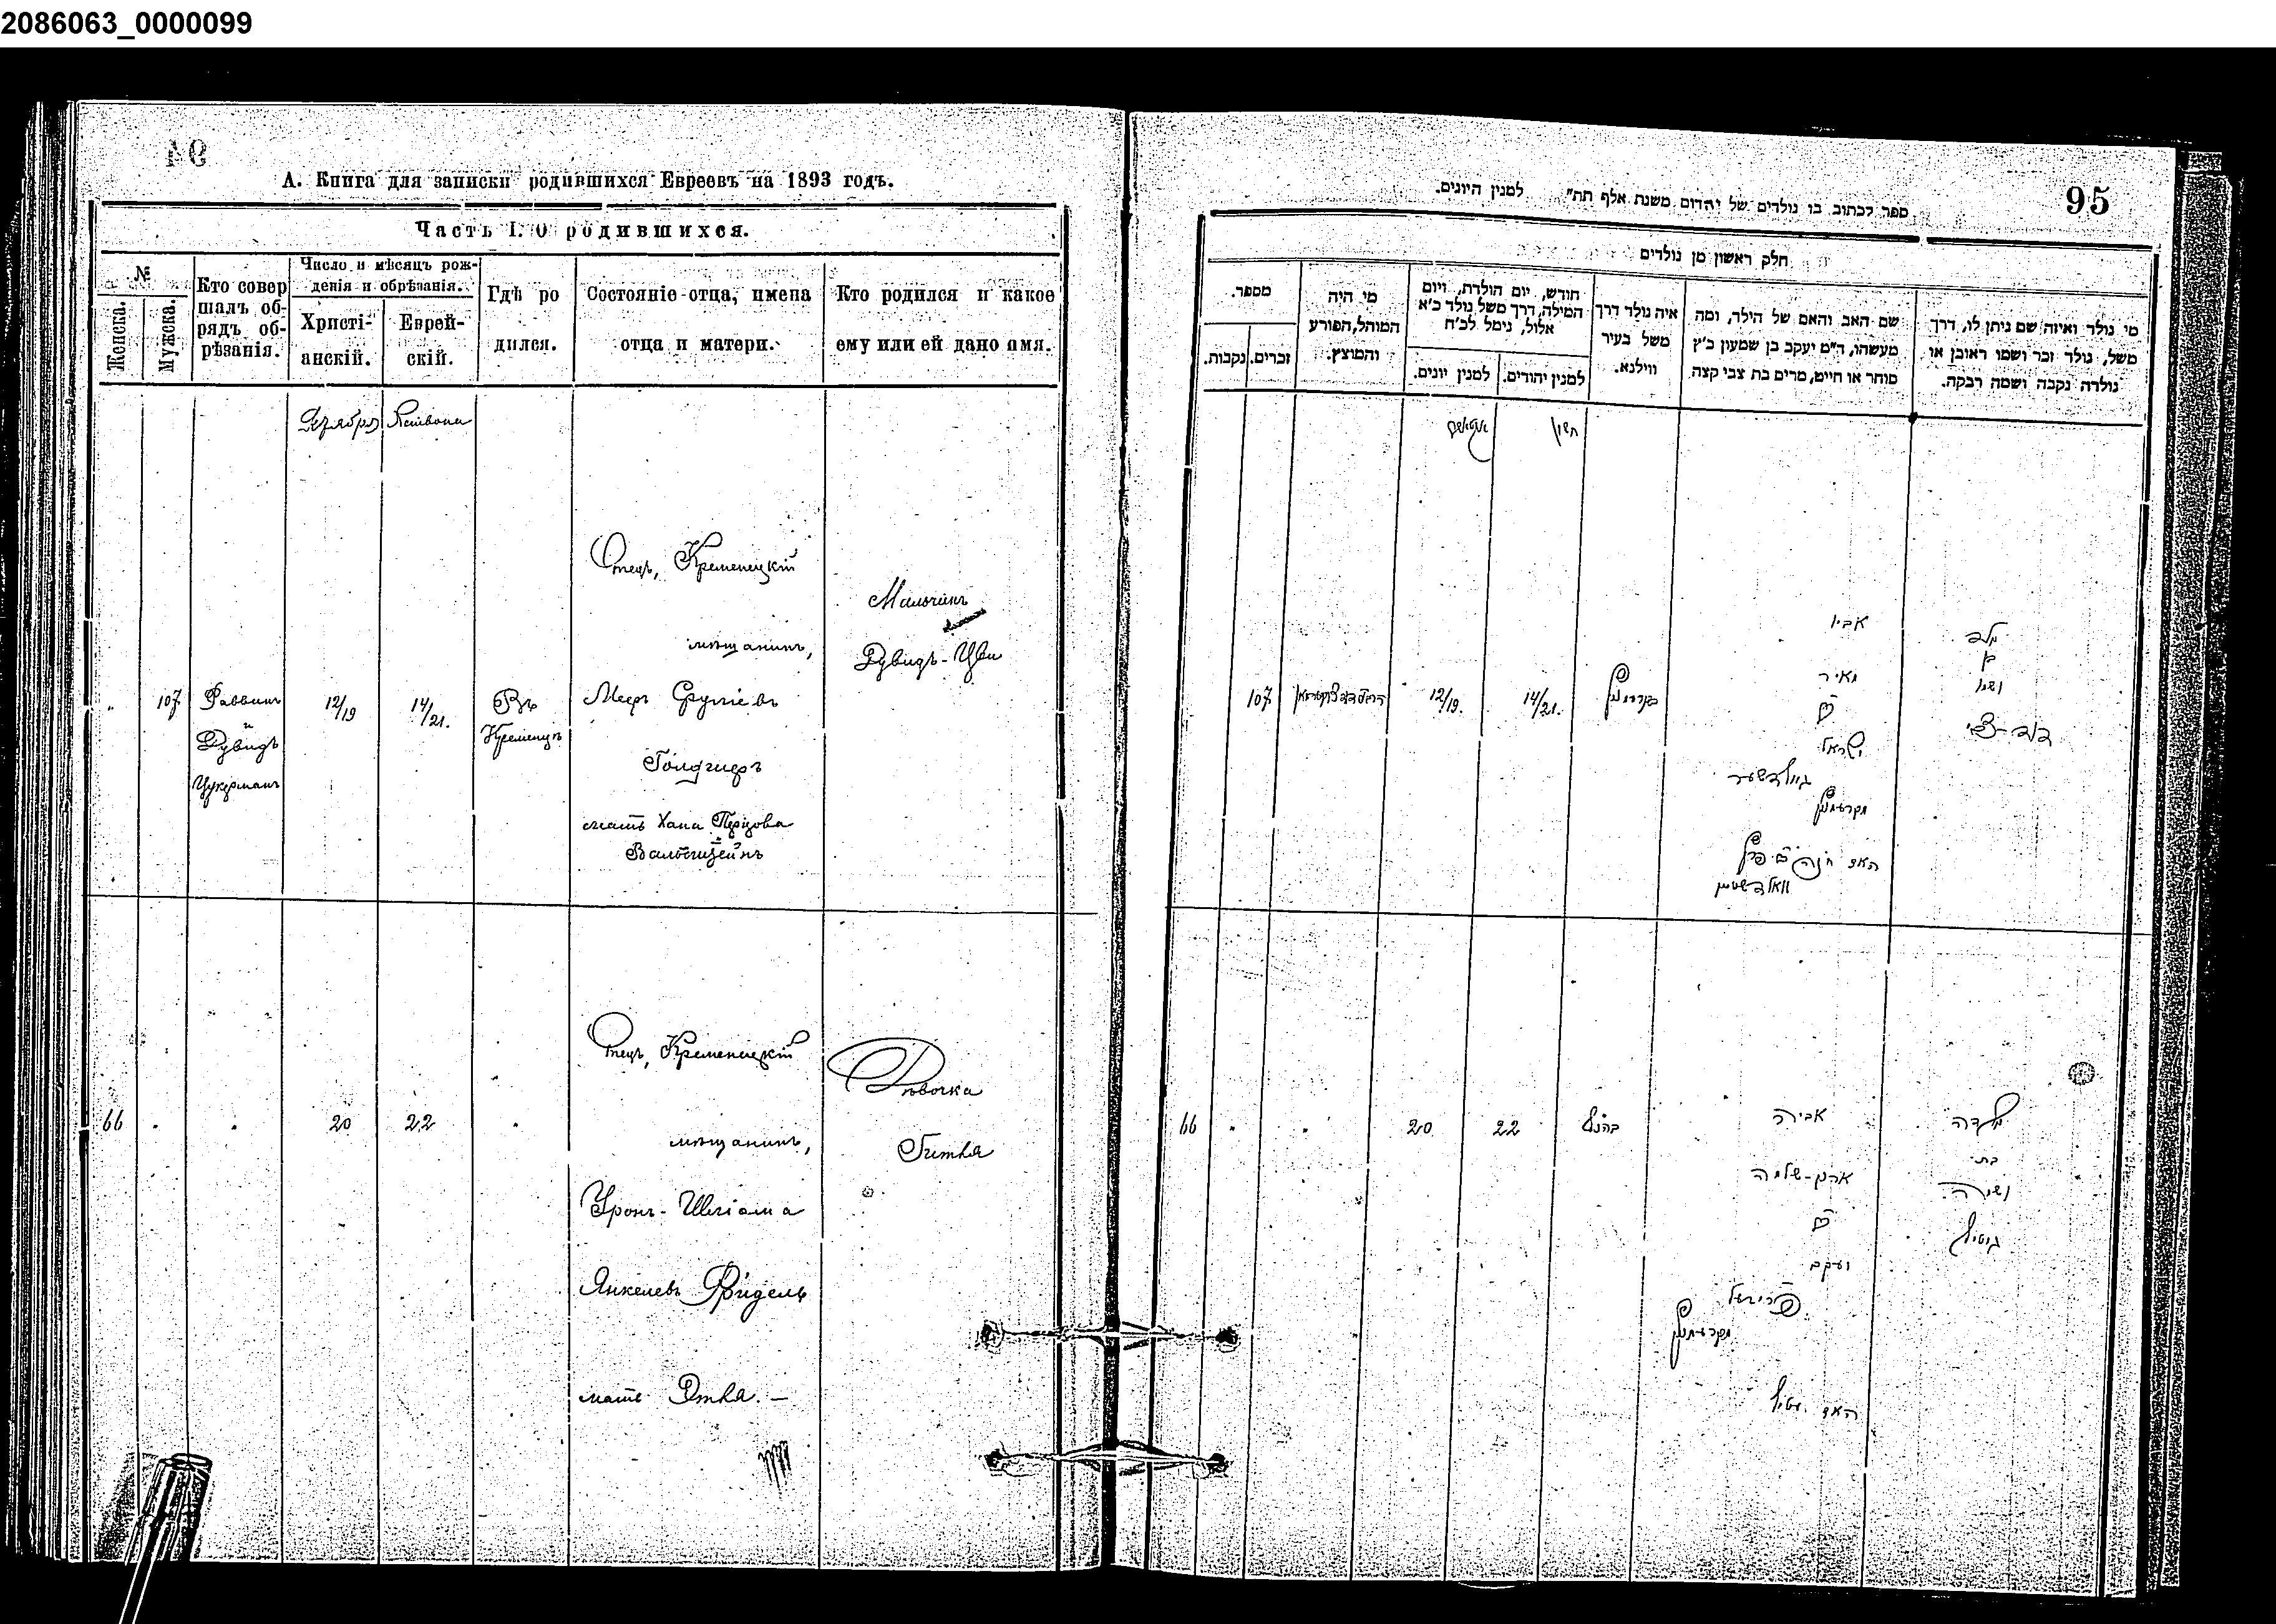 2086063_0000099
А. Книга для записки родившихся Евреевъ на 1893 годъ.
Часть I. О родившихся.
№
Женска.
Мужска.
Кто совер
шалъ об-
рядъ об-
рѣзанія.
Число и мѣсяцъ рож-
денія и обрѣзанія.
Христі-
анскій.
Еврей-
скій.
Гдѣ ро
дился.
Состояніе отца, имена
отца и матери.
Кто родился и какое
ему или ей дано имя.
107
Раввинъ
и
Дувидъ
Цукерманъ
12/19
14/21.
Въ
Кременцѣ
Отецъ, Кременецкій
мѣщанинъ,
Мееръ Сруліевъ
мать Хана
Мальчикъ
Дувидъ-Цви
66
20
22
Отецъ, Кременецкій
мѣщанинъ,
Янкелевъ Фридель
мать Этля. —
Дѣвочка
Гитля
95
ספר לכתוב בו נולדים של יהדום משנת אלף תת״ למנין היונים.
חלק ראשון מן נולדים
מספר.
זכרים.
נקבות.
מי היה
המוהל, הפורע
והמוצץ.
חודש, יום הולדת, ויום
המילה, דרך משל נולד כ׳א
אלול, נימל לכ׳ח
למנין יונים.
למנין יהודים.
איה נולד דרך
משל בעיר
ווילנא.
שם האב והאם של הילד, ומה
מעשהו, ד״מ יעקב בן שמעון כ׳ץ
סוחר או חייט, מרים בת צבי קצה
מי נולד ואיזה שם ניתן לו, דרך
משל, נולד זכר ושמו ראובן או
נולדה נקבה ושמה רבקה.
חשון
107
12/19.
14/21.
אביו
מאיר
ישראל
האם חנה
נולד
בן
ושמו
דוד-צבי
66
20
22
אביה
אהרן-שלמה
יעקב
נולדה
בת
ושמה